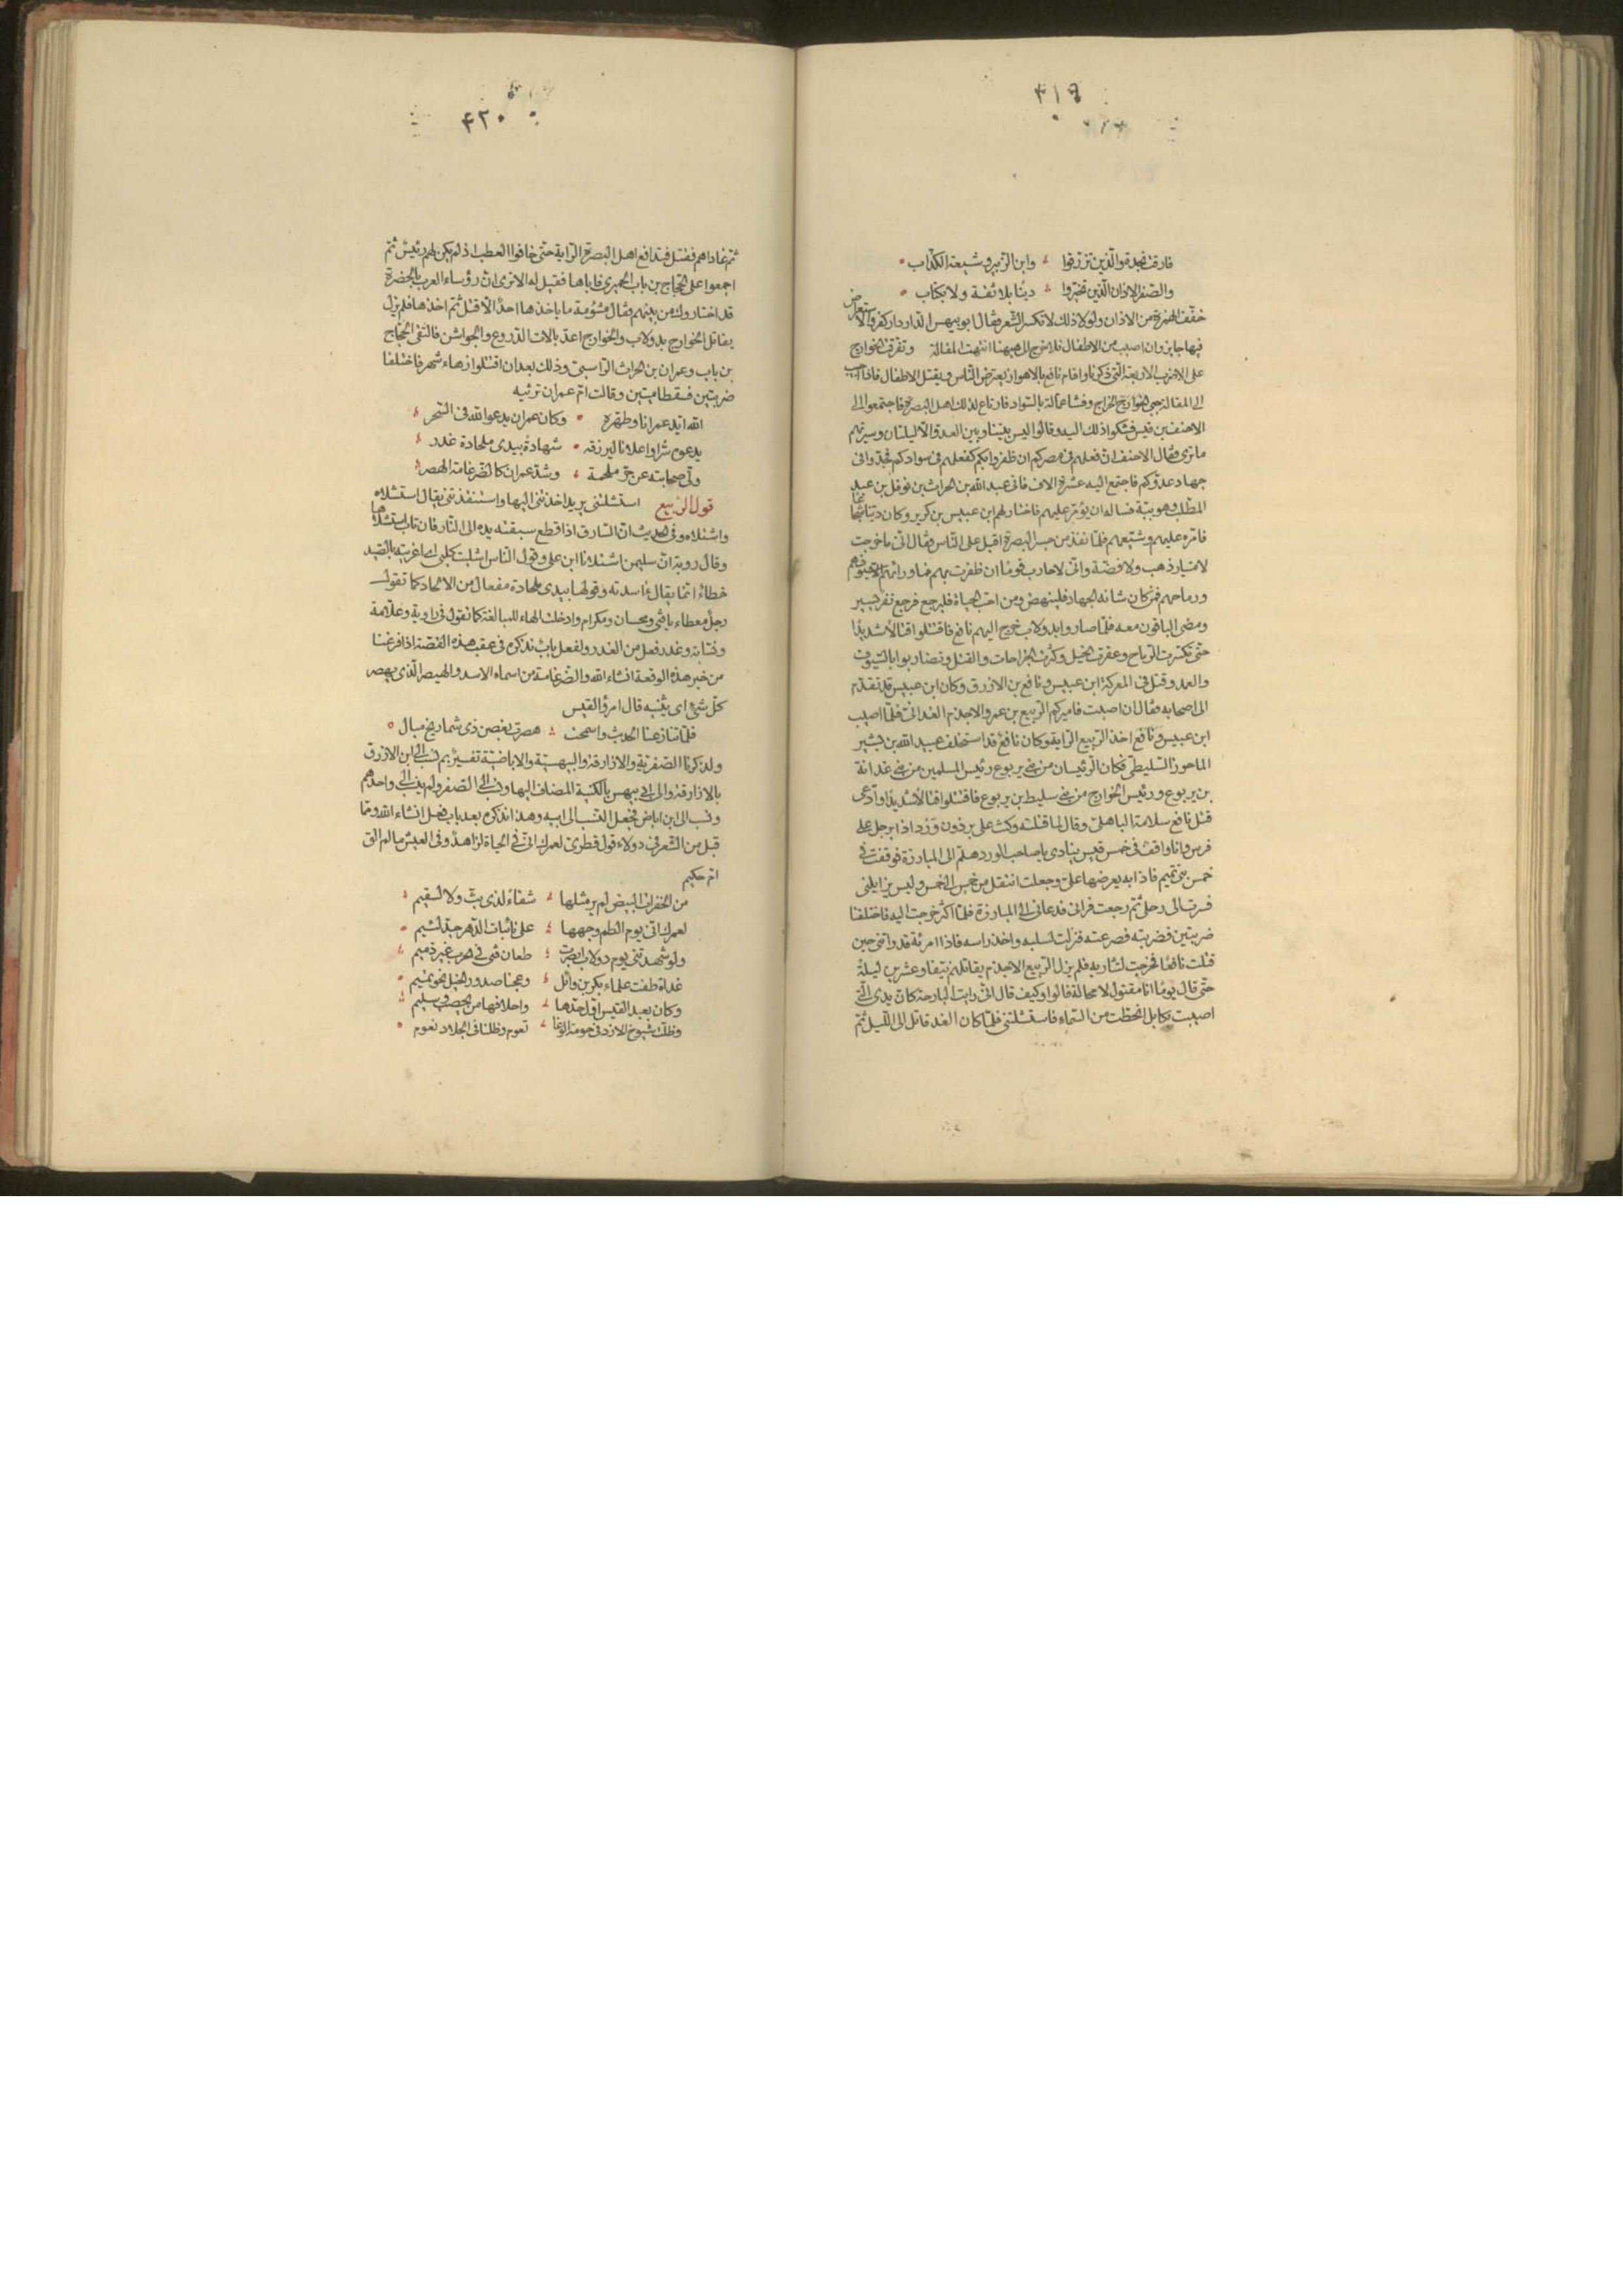 ٤١٩
فارقت نجدة والذين تزرقوا وابن الزبير وشيعة الكذاب
والصفر الاذان الذين تخيروا دينا بلا ثقة ولا بكتاب
خفف الهمزة من الاذان ولولا ذلك لانكسر الشعر وقال ابو بيهس الدار دار كفر والاستعراض
فيها جايز وان اصيب من الاطفال فلا حرج الى هيهنا انتهت المقالة وتفرقت الخوارج
على الاضرب الاربعة التي ذكرنا واقام نافع بالاهواز يعترض الناس ويقتل الاطفال فاذا اجيب
الى المقالة جبى الخراج وفشا عماله بالسواد فارتاع لذلك اهل البصرة فاجتمعوا الى
الاحنف بن قيس فشكوا ذلك اليه وقالوا ليس بيننا وبين العدو الا ليلتان وسيرتهم
ما ترى وقال الاحنف ان فعلهم في مصركم ان ظفروا بكم كفعلهم في سوادكم فجدوا في
جهاد عدوكم فاجتمع اليه عشرة الاف فاتى عبد الله بن الحراث بن نوفل بن عبد
المطلب وهو ببة فساله ان يؤمر عليهم فاختار لهم ابن عبيس بن كريز وكان دينا شجاعا
فامره عليهم وشيعهم فلما نفذ من جسر البصرة اقبل على الناس وقال اني ما خرجت
لامتيار ذهب ولا فضة واني لاحارب قوما ان ظفرت بهم فما ورائهم الا سيوفهم
ورماحهم فمن كان شانه الجهاد فلينهض ومن احب الحياة فليرجع فرجع نفر يسير
ومضى الباقون معه فلما صاروا بدولاب خرج اليهم نافع فاقتتلوا قتالا شديدا
حتى تكسرت الرماح وعقرت الخيل وكثرت الجراحات والقتل وتضاربوا بالسيوف
والعمد وقتل في المعركة ابن عبيس ونافع بن الازرق وكان ابن عبيس قد تقدم
الى اصحابه فقال ان اصبت فاميركم الربيع بن عمرو الاجذم الغداني فلما اصيب
ابن عبيس ونافع اخذ الربيع الراية وكان نافع قد استخلف عبيد الله بن بشير
الماحوز السليطي فكان الرئيسان من بني يربوع رئيس المسلمين من بني غدانة
بن يربوع ورئيس الخوارج من بني سليط بن يربوع فاقتتلوا قتالا شديدا وادعى
قتل نافع سلامة الباهلي وقال لما قتلته وكنت على برذون ورد اذا برجل على
فرس وانا واقف في خمس قيس ينادي يا صاحب الورد هلم الى المبارزة فوقفت في
خمس بني تميم فاذا به يعرضها علي وجعلت انتقل من خمس الى خمس وليس يزايلني
فصرت الى رحلي ثم رجعت فراني فدعاني الى المبارزة فلما اكثر خرجت اليه فاختلفنا
ضربتين فضربته فصرعته فنزلت لسلبه واخذ راسه فاذا امرئة قد راتني حين
قتلت نافعا فخرجت لتثار به فلم يزل الربيع الاجذم يقاتلهم نيفا وعشرين ليلة
حتى قال يوما انا مقتول لا محالة قالوا وكيف قال اني رايت البارحة كان يدي التي
اصيبت بكابل انحطت من السماء فاستشلتني فلما كان الغد قاتل الى الليل ثم
٤٢٠
ثم غاداهم فقتل فتدافع اهل البصرة الراية حتى خافوا العطب اذ لم يكن لهم رئيس ثم
اجمعوا على الحجاج بن باب الحميري فاباها فقيل له الا ترى ان رؤساء العرب بالحضرة
قد اختاروك من بينهم فقال مشؤمة ما ياخذها احد الا قتل ثم اخذها فلم يزل
يقاتل الخوارج بدولاب والخوارج اعد بالات الدروع والجواشن فالتقى الحجاج
بن باب وعمران بن الحراث الراسبي وذلك بعد ان اقتتلوا زهاء شهر فاختلفا
ضربتين فسقطا ميتين وقالت ام عمران ترثيه
الله ايد عمرانا وطهره وكان عمران يدعو الله في السحر
يدعوه سرا واعلانا ليرزقه شهادة بيدي ملحادة غدر
ولى صحابته عن حر ملحمة وشد عمران كالضرغامة الهصر
قول الربيع استشلتني يريد اخذتني اليها واستنقذتني يقال استشلاه
واشتلاه وفي الحديث ان السارق اذا قطع سبقته يده الى النار فان تاب استشلاها
وقال روبة ان سليمن اشتلانا ابن علي وقول الناس اشليت كلبي اي اغريته بالصيد
خطاء انما يقال اسدته وقولها بيدي ملحادة مفعال من الالحاد كما تقول
رجل معطاء يا فتى ومحسان ومكرام وادخلت الهاء للمبالغة كما تقول في راوية وعلامة
ونسابة وغدر فعل من الغدر ولفعل باب نذكره في عقب هذه القصة اذا فرغنا
من خبر هذه الوقعة انشاء الله والضرغامة من اسماء الاسد والهيصر الذي يهصر
كل شئ اي يثنيه قال امرؤ القيس
فلما تنازعنا الحديث واسمحت هصرت بغصن ذي شماريخ ميال
ولذكرنا الصفرية والازارقة والبيهسية والاباضية تفسير لم نسب الى ابن الازرق
بالازارقة والى ابي بيهس بالكنية المضاف اليها ونسب الى الصفر ولم ينسب الى واحدهم
ونسب الى ابن اباض فجعل النسب الى ابيه وهذا نذكره بعد باب فعل انشاء الله ومما
قيل من الشعر في دولاب قول قطري لعمرك اني في الحياة لزاهد وفي العيش ما لم الق
ام حكيم
من الخفرات البيض لم ير مثلها شفاء لذي بث ولا لسقيم
لعمرك اني يوم الطم وجهها على نائبات الدهر جد لئيم
ولو شهدتني يوم دولاب ابصرت طعان فتى في الحرب غير ذميم
غداة طفت علماء بكر بن وائل وعجنا صدور الخيل نحو تميم
وكان بعبد القيس اول حدها واحلافها من يحصب وسليم
وظلت شيوخ الازد في حومة الوغا تعوم وظلنا في الجلاد نعوم